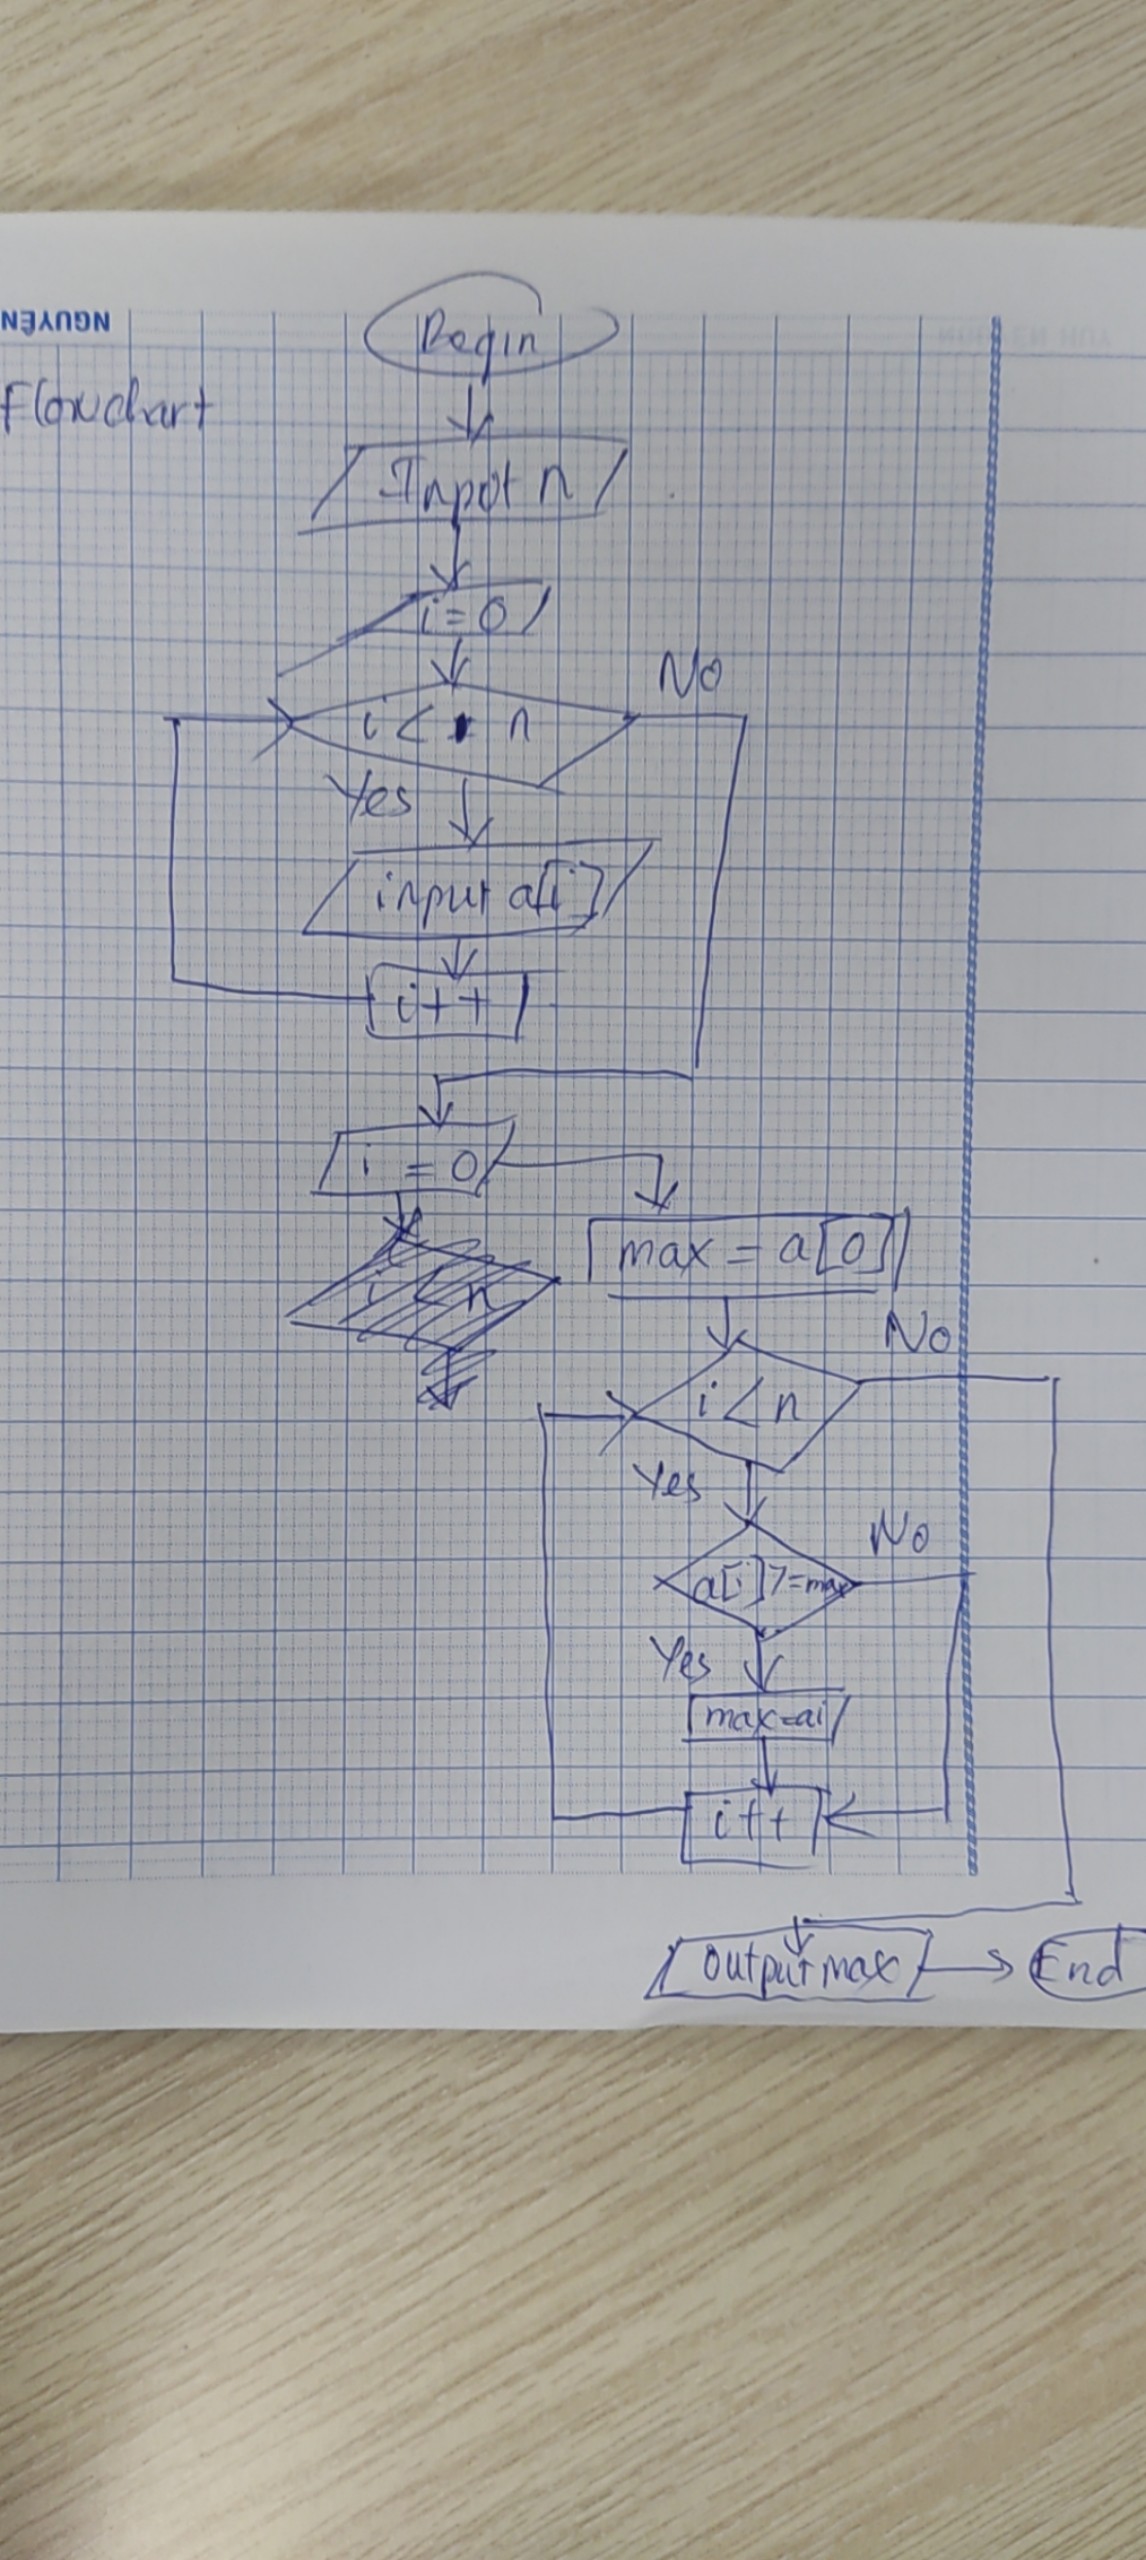 NGUYÊN
Flowchart
Begin
Input n
i = 0
i < n
No
Yes
input a[i]
i++
i = 0
i < n
max = a[0]
i < n
No
Yes
a[i] >= max
No
Yes
max=ai
i++
output max
End